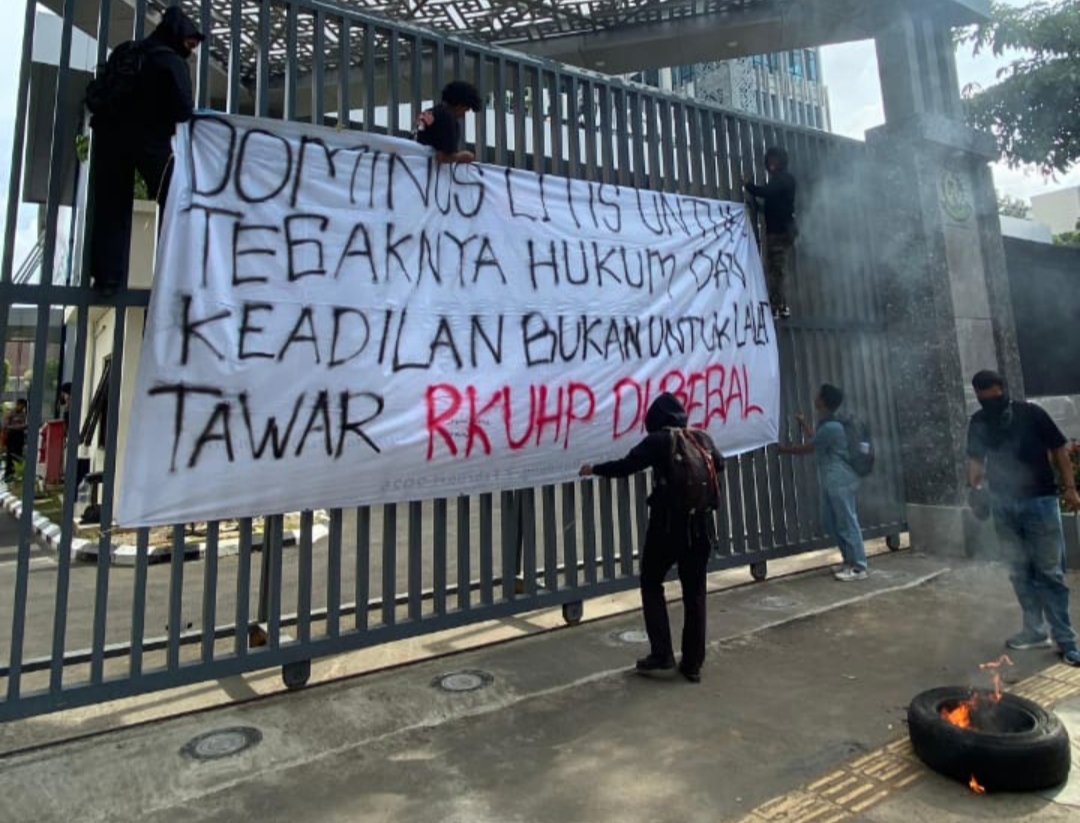 DOMINUS LITIS UNTUK
TEGAKNYA HUKUM DAN
KEADILAN BUKAN UNTUK LALAT
TAWAR RKUHP DIBEBAL